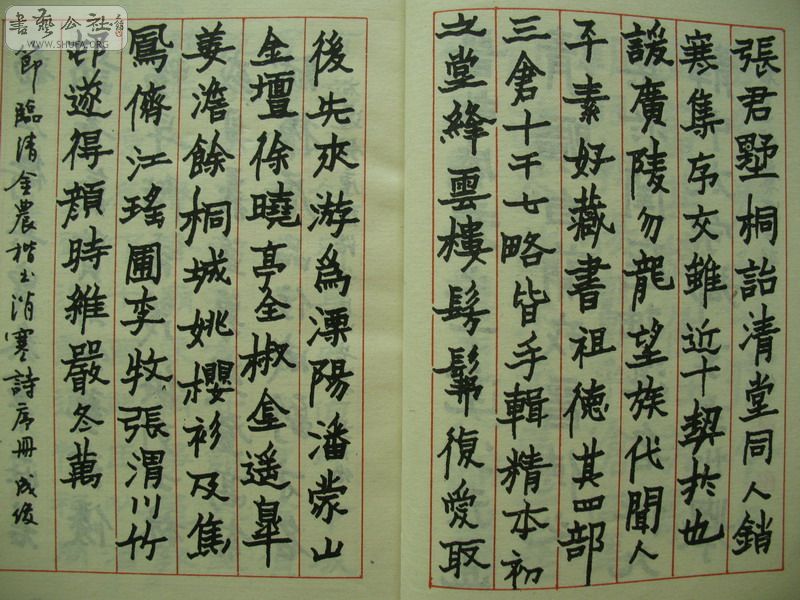 張君墅桐詒清堂同人銷
寒集序交雖近十契於也
諼廣陵勿龍望族代聞人
平素好藏書祖德其四部
三倉十干七略皆手輯精本初
之堂絳雲樓髣髴復愛取
後先來游為溧陽潘蒙山
金壇徐曉亭全椒金遥皐
姜澹餘桐城姚櫻衫及焦
鳳儕江瑤圃李牧張渭川竹
邨遂得顏時維嚴冬萬
節臨清金農楷书消寒詩序冊 成俊
書藝公社
WWW.SHUFA.ORG